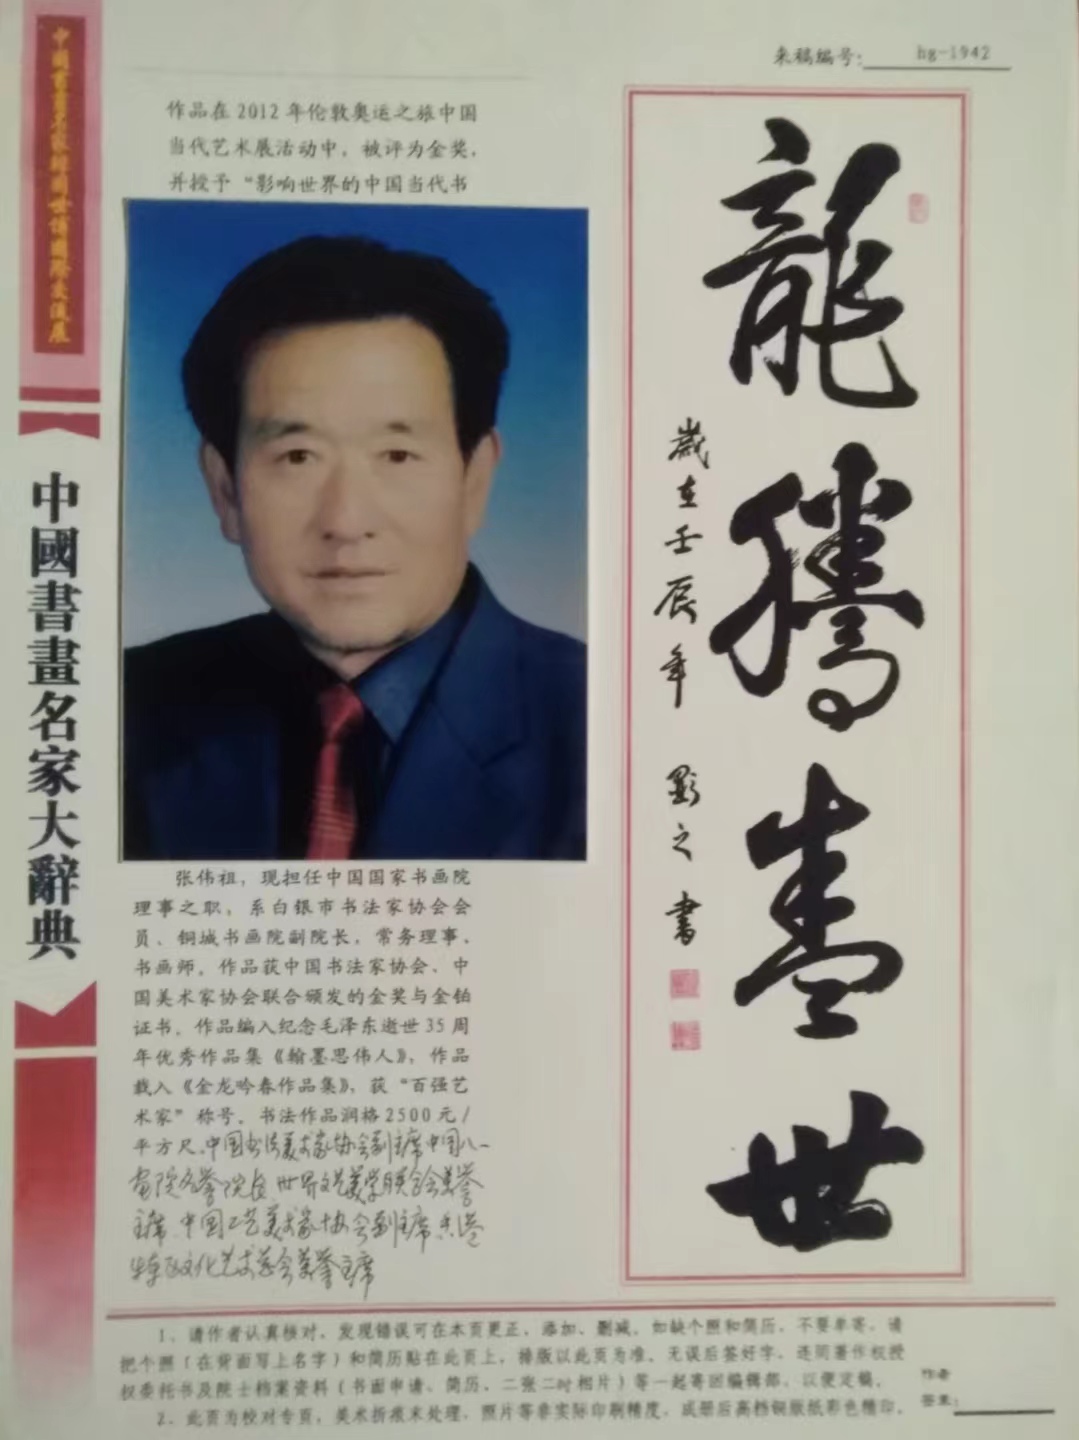 来稿编号: hg-1942
中國書畫名家大辭典
作品在2012年伦敦奥运之旅中国
当代艺术展活动中，被评为金奖，
并授予“影响世界的中国当代书
龍騰盛世
歲在壬辰年 影之書
张伟祖，现担任中国国家书画院
理事之职，系白银市书法家协会会
员、铜城书画院副院长，常务理事、
书画师，作品获中国书法家协会、中
国美术家协会联合颁发的金奖与金铂
证书，作品编入纪念毛泽东逝世35周
年优秀作品集《翰墨思伟人》，作品
载入《金龙吟春作品集》，获“百强艺
术家”称号，书法作品润格2500元/
平方尺.中国书法美术家协会副主席中国八一
画院名誉院长 世界文艺美学联合会美誉
主席.中国工艺美术家协会副主席.香港
文化艺术总会美誉主席
1、请作者认真核对，发现错误可在本页更正，添加、删减，如缺个照和简历，不要单寄，请
把个照（在背面写上名字）和简历贴在此页上，排版以此页为准，无误后签好字，连同著作权授
权委托书及院士档案资料（书面申请、简历、二张二吋相片）等一起寄回编辑部，以便定稿。
2、此页为校对专页，美术折痕未处理，照片等非实际印刷精度，成册后高档铜版纸彩色精印。
作者
签名：